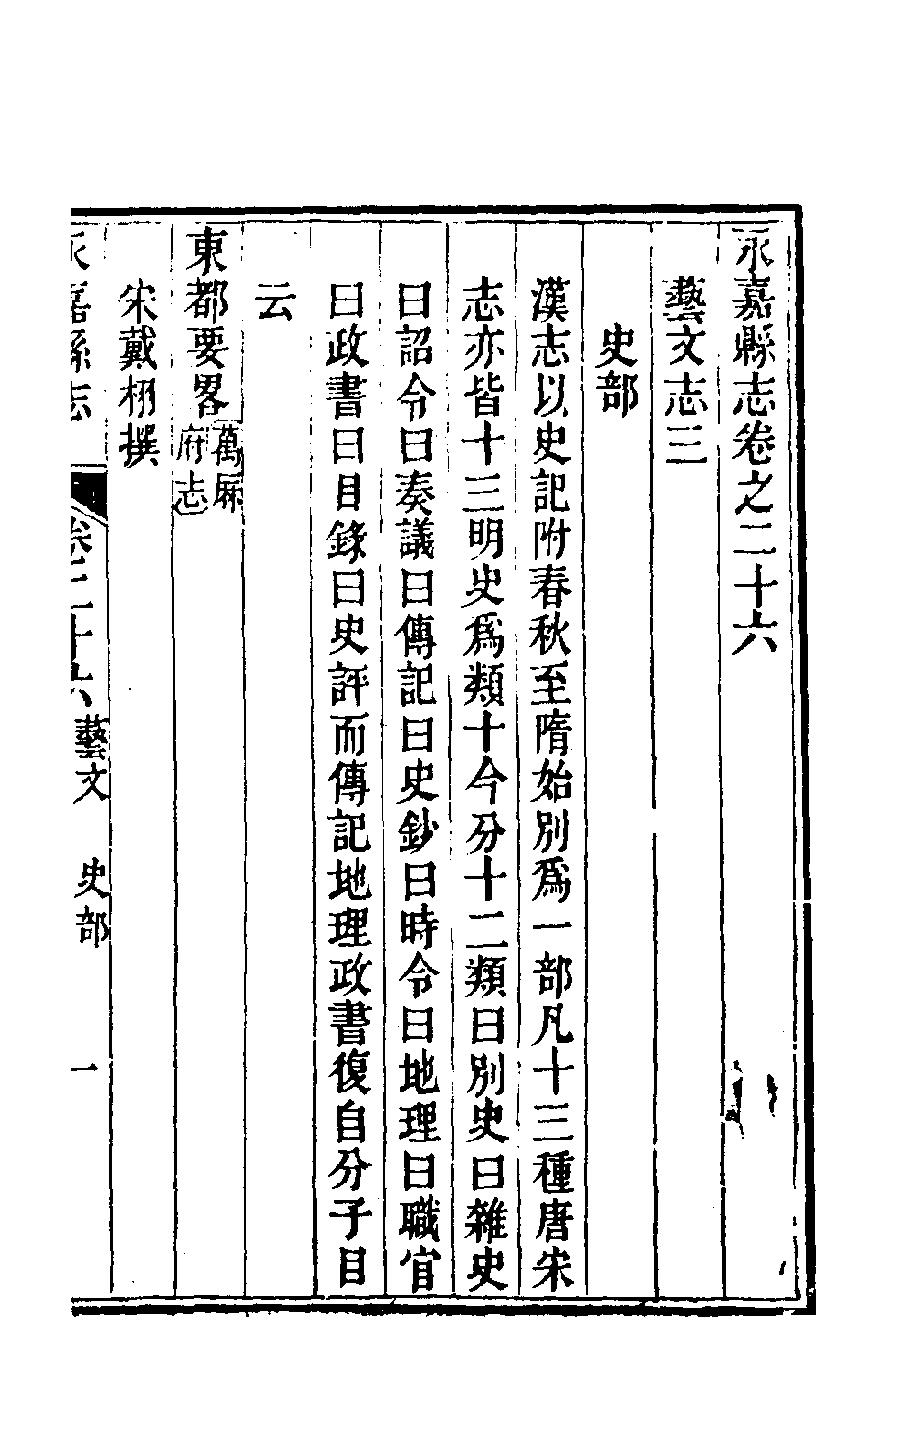 永嘉縣志卷之二十六
藝文志三
史部
漢志以史記附春秋至隋始別爲一部凡十三種唐宋
志亦皆十三明史爲類十今分十二類曰別史曰雜史
曰詔令曰奏議曰傳記曰史鈔曰時令曰地理曰職官
曰政書曰目錄曰史評而傳記地理政書復自分子目
云
東都要畧萬厤府志
宋戴栩撰
永嘉縣志 卷二十六 藝文 史部 一